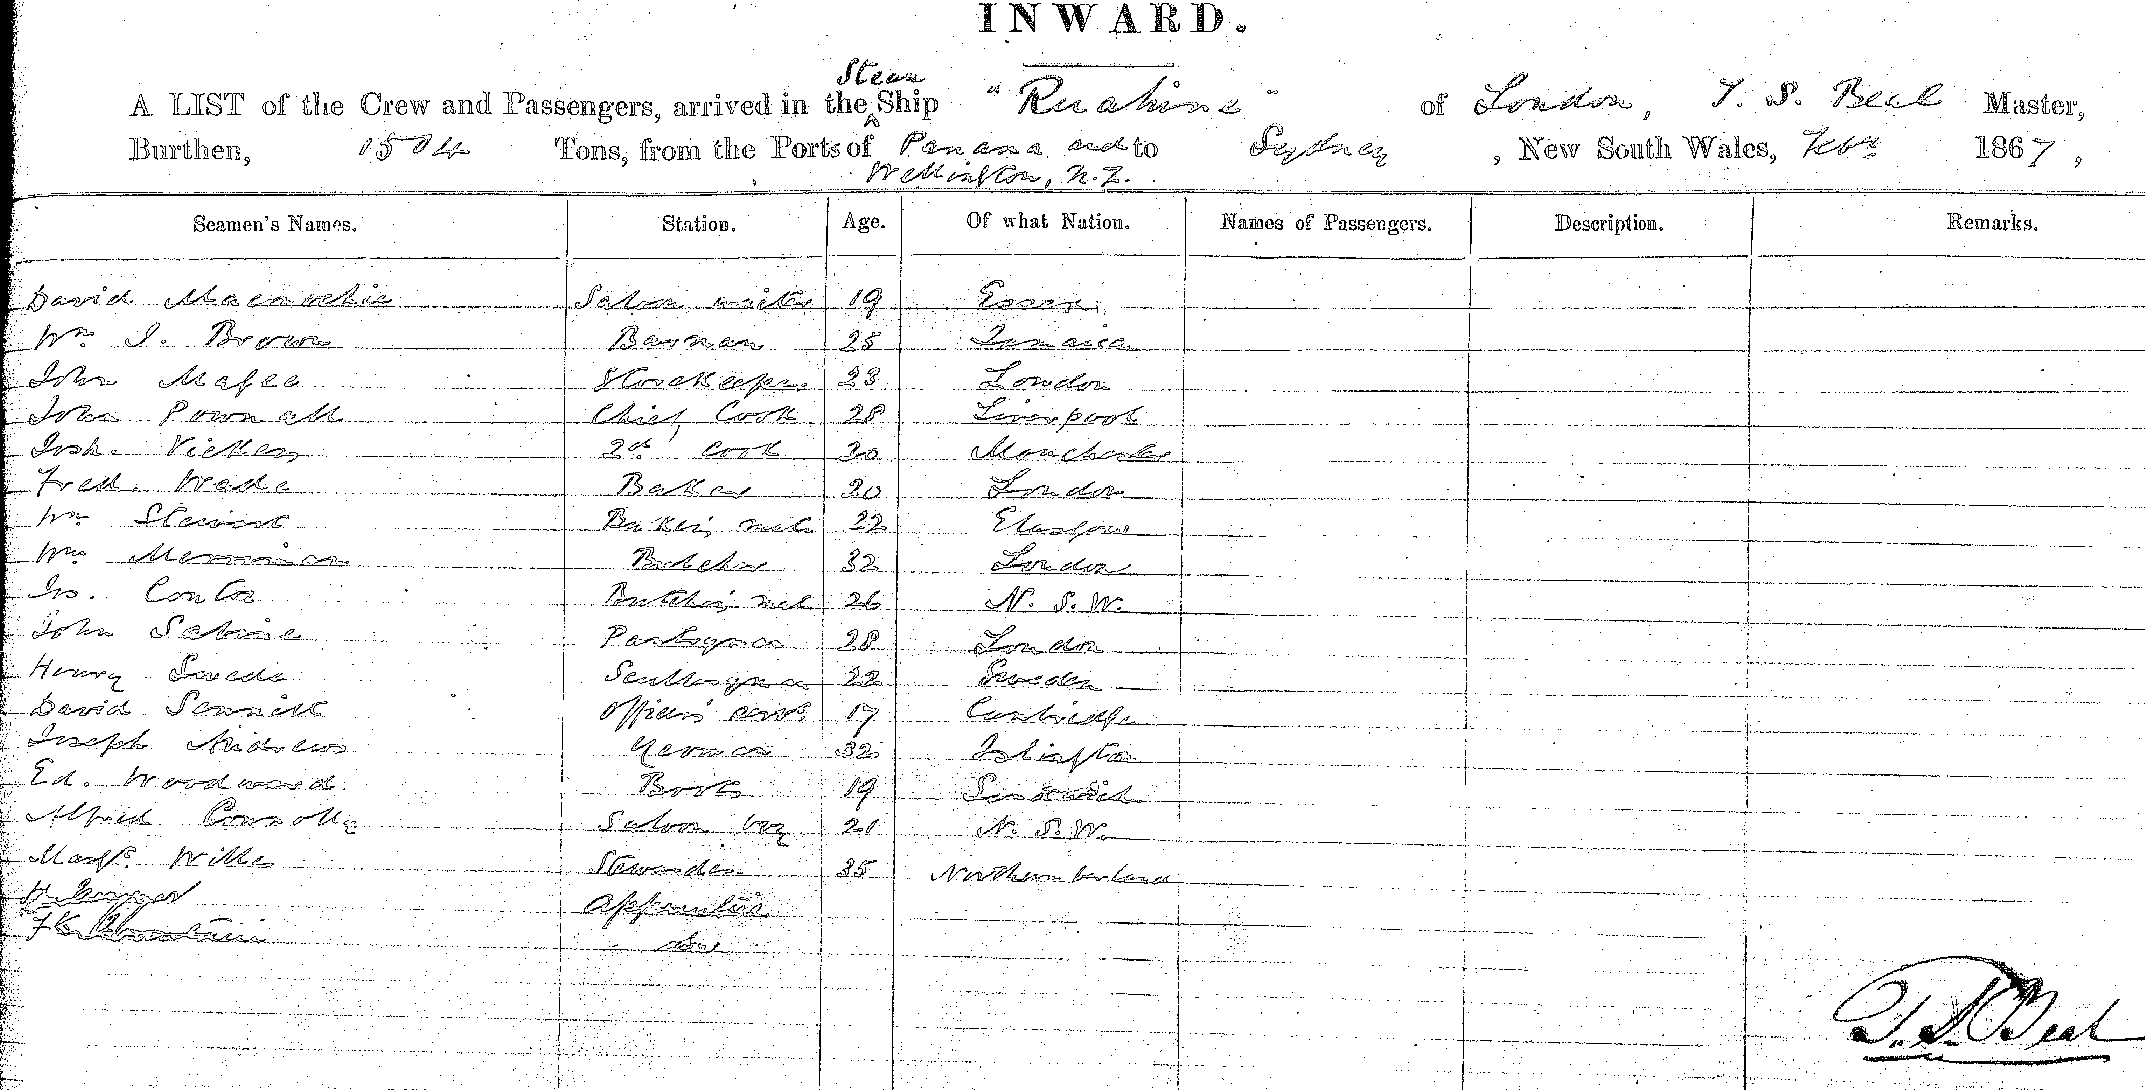 INWARD.
Steam
A LIST of the Crew and Passengers, arrived in the Ship "Ruahine" of London, T. S. Beal Master,
Burthen, 1504 Tons, from the Ports of Panama and to Sydney, New South Wales, Feby 1867,
Wellington, N.Z.
Seamen's Names. Station. Age. Of what Nation. Names of Passengers. Description. Remarks.
David Saloon waiter 19 Essex
Wm J. Brown Barman 25 Jamaica
John Magee Storekeeper 23 London
John Pownall Chief Cook 28 Liverpool
Josh. Vickers 2d Cook 30 Manchester
Fred. Wade Baker 20 London
Wm Stewart Bakers mate 22 Glasgow
Wm Merriman Butcher 32 London
Butchers mate 26 N. S. W.
John Sabine Pantryman 28 London
Henry Swede Sculleryman 22 Sweden
David Sennitt Officers servt 17 Cambridge
Joseph Andrews Yeoman 32 Islington
Ed. Woodward Boots 19 Sandwich
Alfred Connolly Saloon boy 21 N. S. W.
Margt. Wills Stewardess 35 Northumberland
H. Apprentice
F. do
T. S. Beal